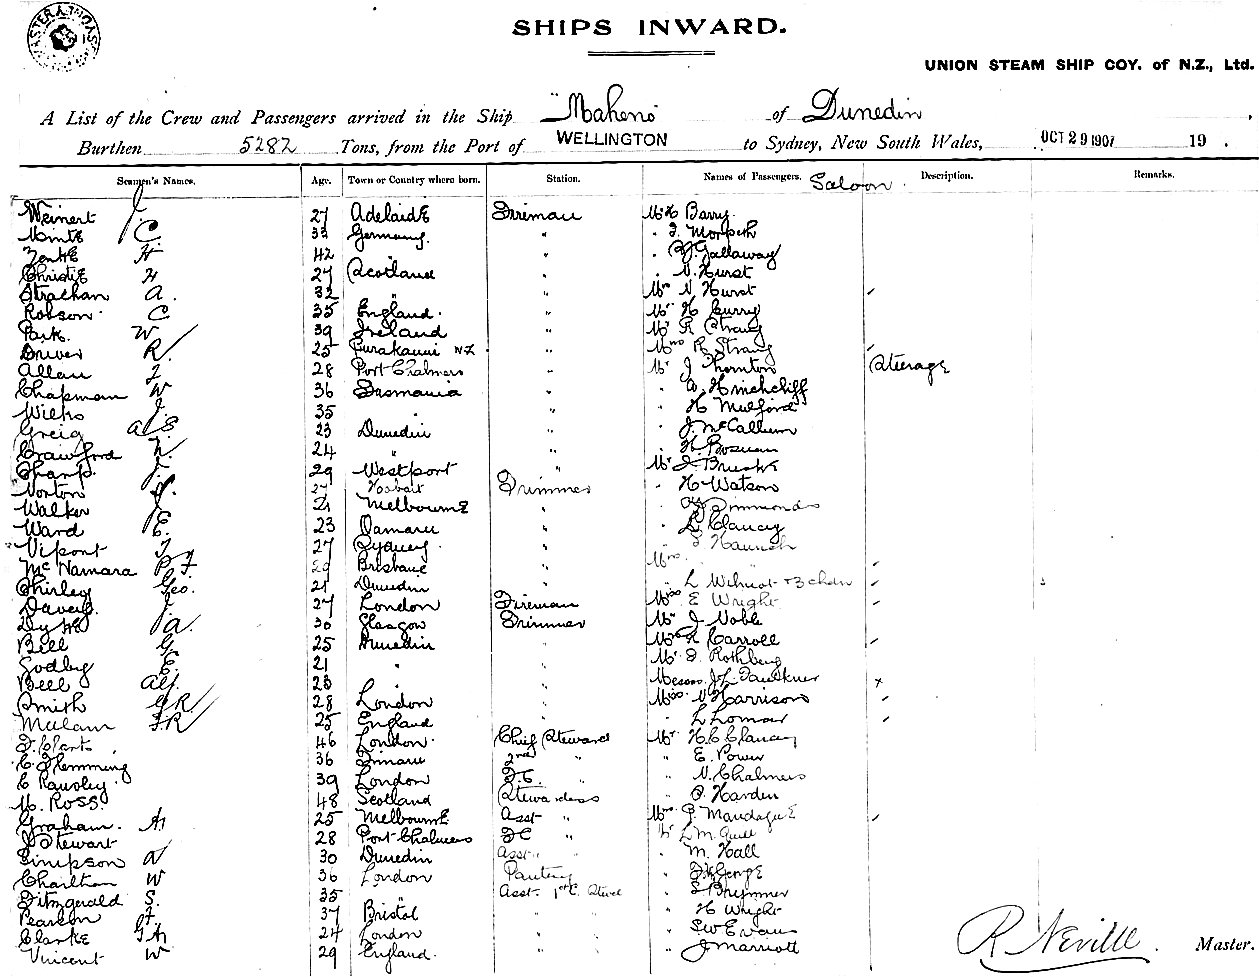 SHIPS INWARD.
UNION STEAM SHIP COY. of N.Z., Ltd.
A List of the Crew and Passengers arrived in the Ship "Maheno" of Dunedin,
Burthen 5282 Tons, from the Port of WELLINGTON to Sydney, New South Wales, OCT 29 1907 19 .
Seamen's Names. Age. Town or Country where born. Station. Names of Passengers. Saloon. Description. Remarks.
Weinert J. 27 Adelaide Fireman Mr H Barry.
C. 33 Germany. " " J. Morpeth
H 42 " " Gallaway
Christie H 27 Scotland " " N. Hurst
Strachan A. 32 " " Mrs N Hurst
Robson C 35 England. " Mr H Curry
Park. W 39 Ireland " Mr R Strang
Driver R/ 25 Purakanui NZ " Mrs R Strang
Allan J 28 Port Chalmers " Mr J Thornton Steerage
Chapman W 36 Tasmania " " A. Hinchcliff
Wilks J. 35 " " " H Mulford
Greig A S 23 Dunedin " " J. McCallum
Crawford W. 24 " " " H.
Sharp. J. 29 Westport " Mr J
Norton J. 27 Hobart Trimmer " H Watson
Walker J 21 Melbourne " " Simmonds
Ward E. 23 Oamaru " " L Clancy
Vipont J 27 Sydney. " "
McNamara P F 29 Brisbane " Mrs "
Shirley Geo. 21 Dunedin " " L Wilmot + 3 chdn
Davey. J. 27 London Fireman Miss E Wright
Dyke A. 30 Glasgow Trimmer Mr J Noble
Bell G 25 Dunedin " Carroll
Godby E. 21 " " Mr S. Rothberg
Bell Alf. 23 " " Messrs J L Faulkner
Smith G R/ 28 London " Miss V Harrison
Mulam F R/ 25 England " " L Lomax
J. Clark. 46 London. Chief Steward Mr H C Clancy
C Flemming 36 Timaru 2nd " " E. Power
C Rawsley. 39 London F.C. " " N. Chalmers
M. Ross 48 Scotland Stewardess " Harden
Graham. 25 Melbourne Asst " Mrs P.
J Stewart 28 Port Chalmers FC " L M
Simpson A 30 Dunedin Asst. " " M. Hall
Charlton W 36 London Pantry " George
Fitzgerald S. 35 " Asst. 1st C. Stewd " S Brymner
Pearson F. 37 Bristol " " " H Wright
Clarke 24 London " " " S W Evans
Vincent W 29 England. " " " J Marriott
R Neville. Master.